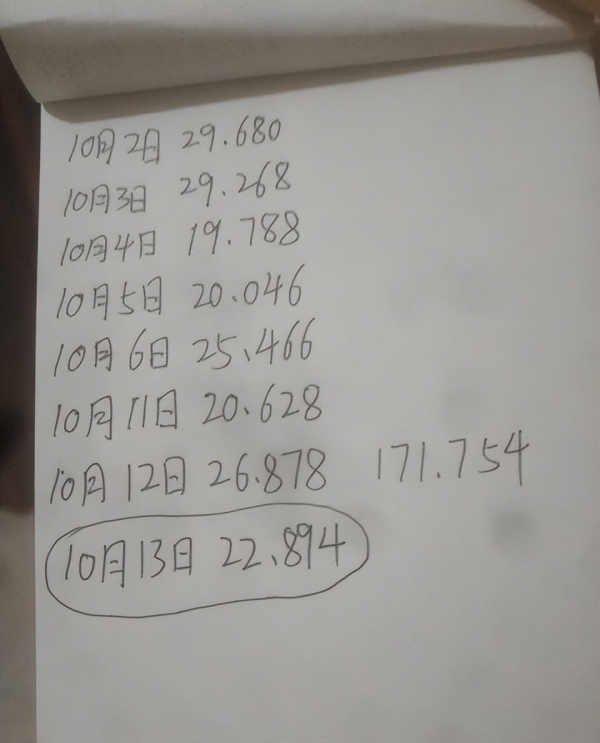 10月2日 29.680
10月3日 29.268
10月4日 19.788
10月5日 20.046
10月6日 25.466
10月11日 20.628
10月12日 26.878 171.754
10月13日 22.894